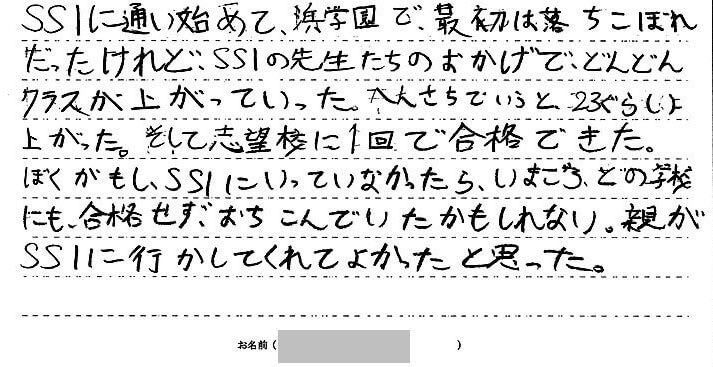 SS1に通い始めて、浜学園で、最初は落ちこぼれ
だったけれど、SS1の先生たちのおかげで、どんどん
クラスが上がっていった。へんさちでいうと、23ぐらい
上がった。そして志望校に1回で合格できた。
ぼくがもし、SS1にいっていなかったら、いまごろ、どの学校
にも、合格せず、おちこんでいたかもしれない。親が
SS1に行かしてくれてよかったと思った。
お名前( )